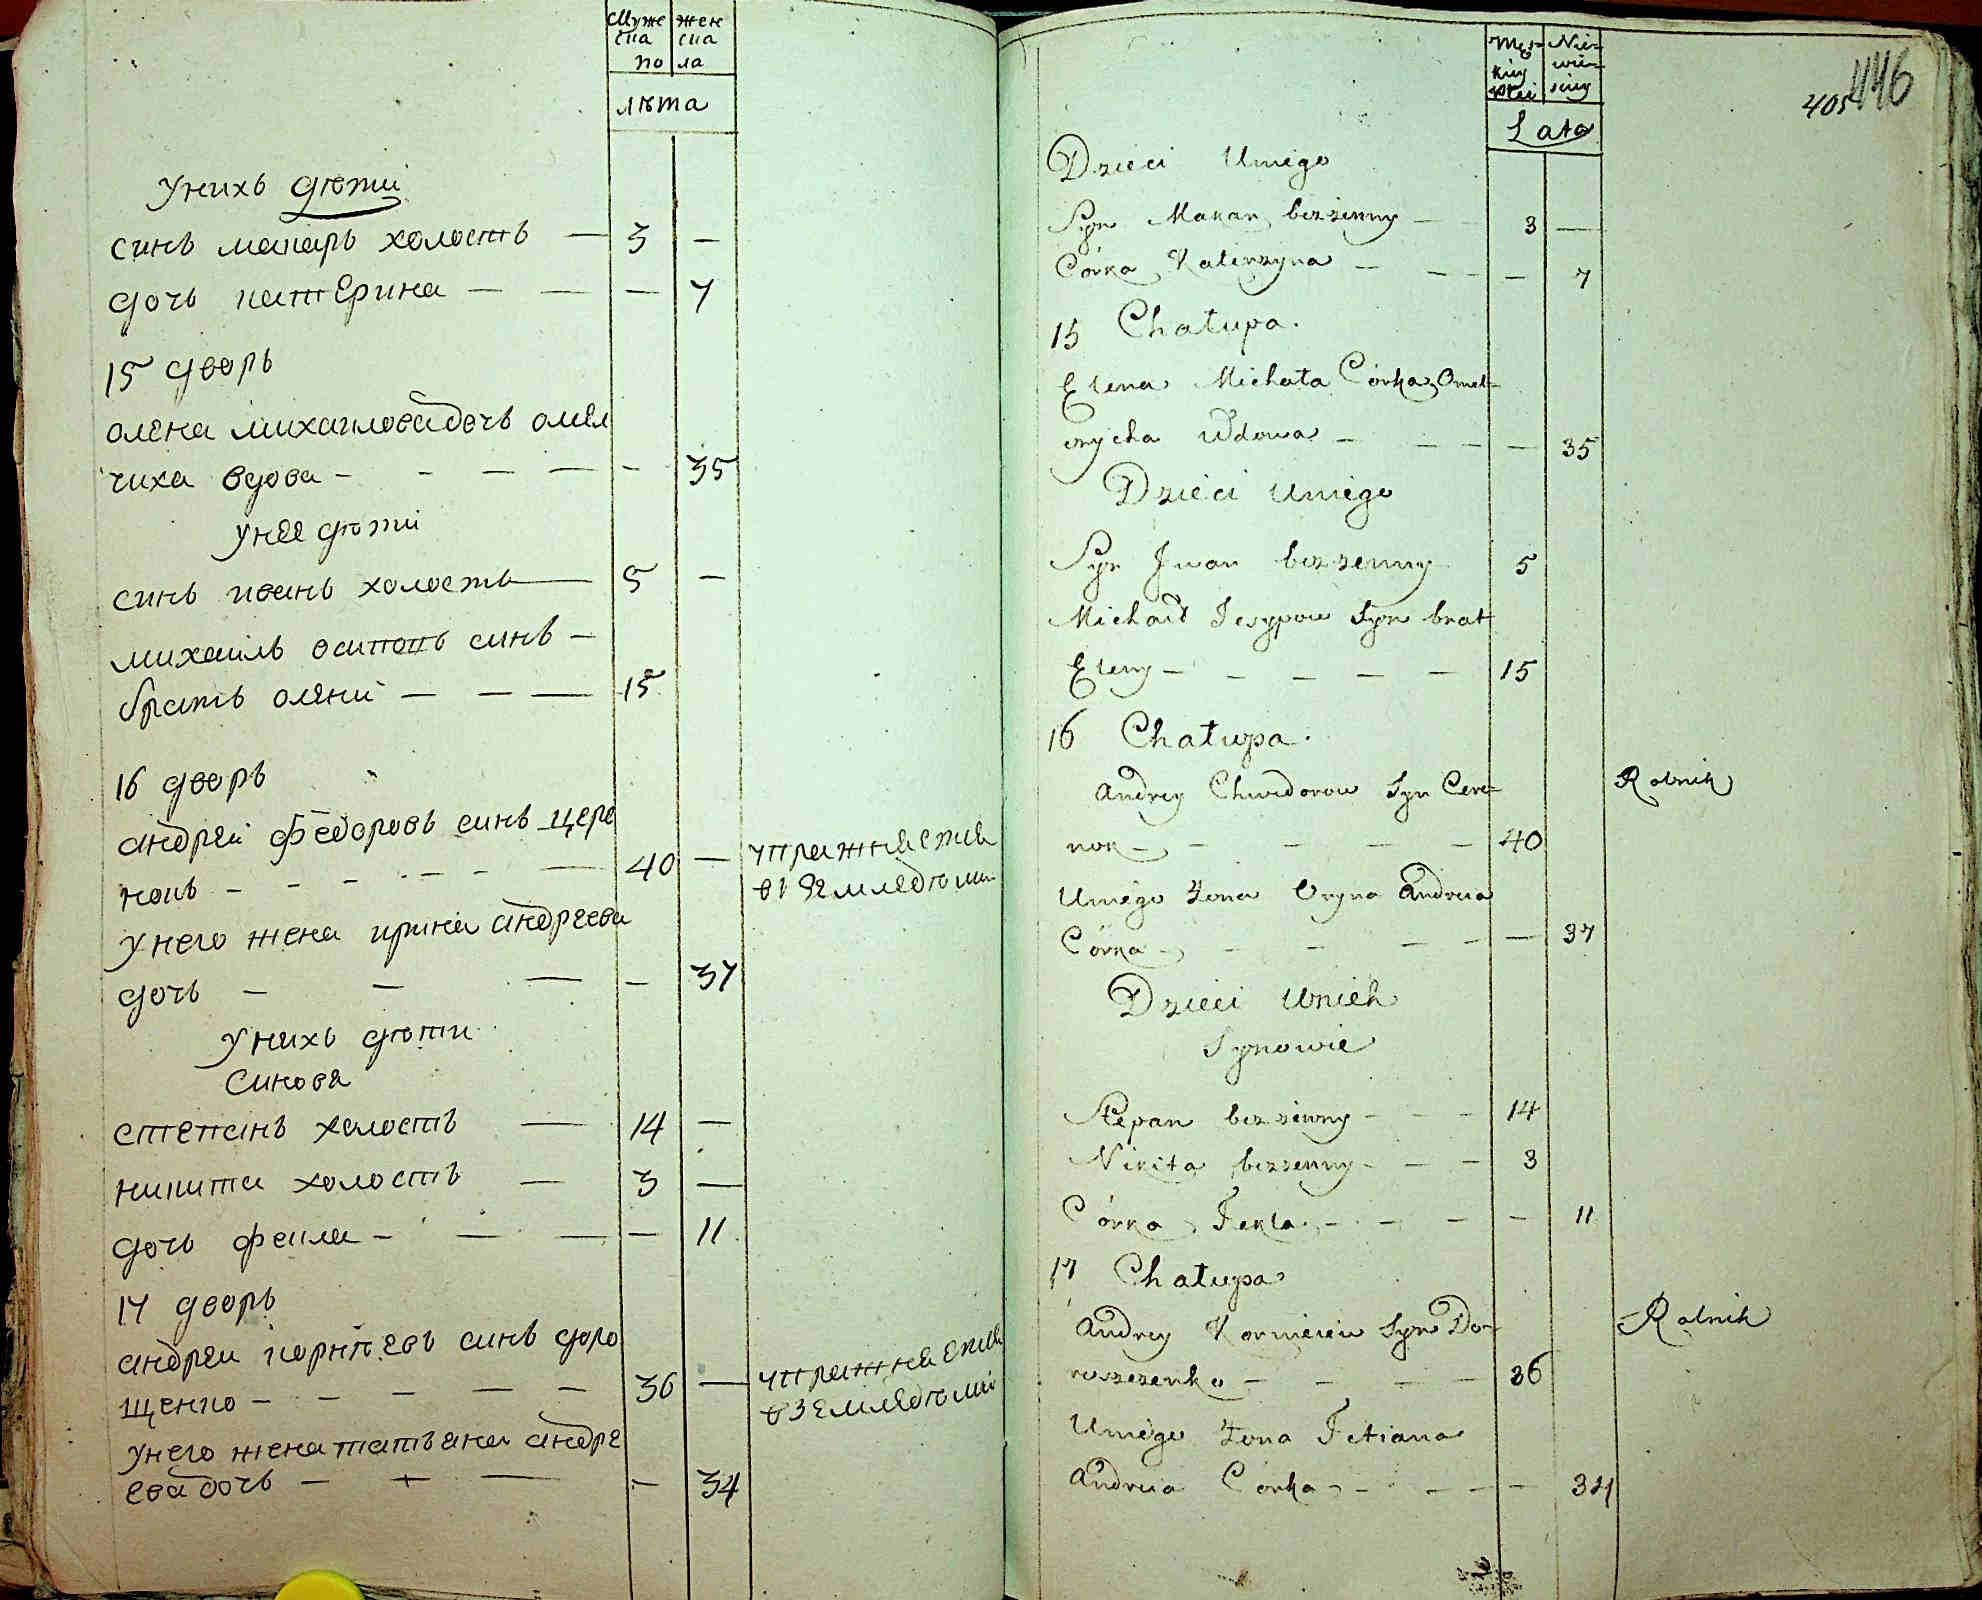 Муже жен
ска ска
по ла
лѣта
у нихъ дѣти
синъ макаръ холостъ — 3 —
дочь катерина — — — 7
15 дворъ
олена михаиловадочъ омел
чиха вдова — — — — — 35
у нее дѣти
синъ иванъ холостъ — 5 —
михаилъ осиповъ синъ —
братъ олени — — — 15
16 дворъ
андрей федоровъ синъ цере
нокъ — — — — — — 40 — упражняется
в землѣдѣли
у него жена ирина андреева
дочь — — — — 37
у нихъ дѣти
синовя
степанъ холостъ — 14 —
никита холостъ — 3 —
дочь фекла — — — — 11
17 дворъ
андреи корнѣевъ синъ доро
щенко — — — — — 36 — упражняется
в землѣдѣли
у него жена татъяна андре
ева дочъ — — — — 34
Męz- Nie-
kiey wie-
płci sciey
Lata
405 446
Dzieci Uniego
Syn Makar bezżenny — 3 —
Córka Katerzyna — — — 7
15 Chałupa.
Elena Michała Córka Omel-
czycha wdowa — — — — 35
Dzieci Uniego
Syn Jwan bezżenny 5
Michaił Jesypow Syn brat
Eleny — — — — — 15
16 Chałupa.
Andrey Chwedorow Syn Cere- Rolnik
nok — — — — — 40
Uniego Żona Oryna Andreia
Córka — — — — — — 37
Dzieci Unich
Synowie
Stepan bezżenny — — — 14
Nikita bezżenny — — — 3
Córka Fekla — — — — 11
17 Chałupa
Andrey Korniеiew Syn Do- Rolnik
roszczenko — — — — 36
Uniego Żona Tetiana
Andreia Córka — — — — 34